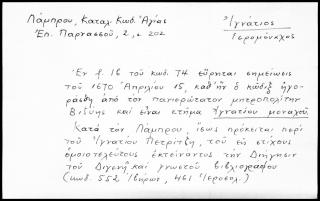 Λάμπρου, Καταλ. Κωδ. Ἁγίας
Ἐπ. Παρνασσοῦ, 2, 202
Ἰγνάτιος
Ἱερομόναχος
Ἐν f. 16 τοῦ κωδ. 74 εὕρηται σημείωσις
τοῦ 1670 Ἀπριλίου 15, καθ' ἣν ὁ κῶδιξ ἠγο-
ράσθη ἀπὸ τὸν πανιερώτατον μητροπολίτην
Βιδύνης καὶ εἶναι κτῆμα Ἰγνατίου μοναχοῦ.
Κατὰ τὸν Λάμπρον, ἴσως πρόκειται περὶ
τοῦ Ἰγνατίου Πετρίτζη, τοῦ εἰς στίχους
ὁμοιοτελεύτους ἐκτείναντος τὴν Διήγησιν
τοῦ Διγενῆ καὶ γνωστοῦ βιβλιογράφου
(κωδ. 552 Ἰβήρων, 461 Ἱεροσολ.)